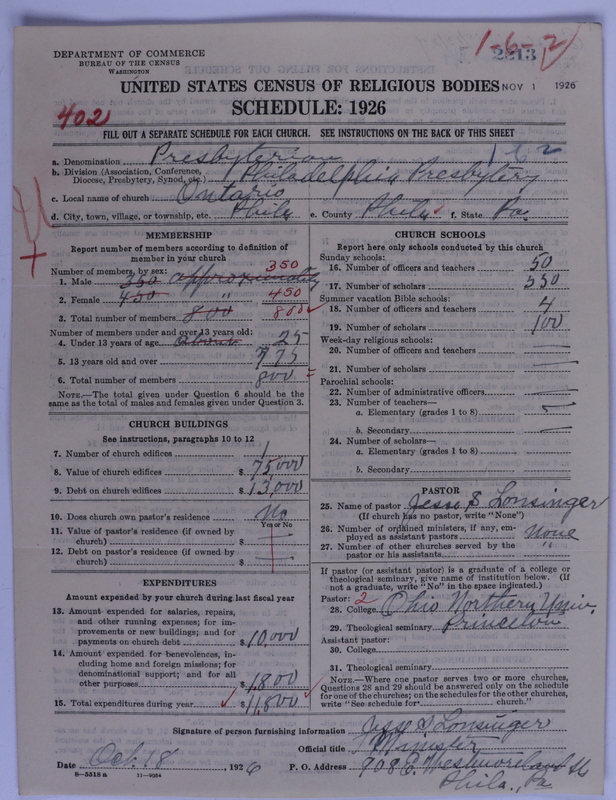 DEPARTMENT OF COMMERCE
BUREAU OF THE CENSUS
WASHINGTON
1-6-2
2213
UNITED STATES CENSUS OF RELIGIOUS BODIES NOV 1 1926
SCHEDULE: 1926
402
FILL OUT A SEPARATE SCHEDULE FOR EACH CHURCH. SEE INSTRUCTIONS ON THE BACK OF THIS SHEET
a. Denomination Presbyterian 1-6-2
b. Division (Association, Conference, Diocese, Presbytery, Synod, etc.) Philadelphia Presbytery
c. Local name of church Ontario
d. City, town, village, or township, etc. Phila e. County Phila f. State Pa.
MEMBERSHIP
Report number of members according to definition of
member in your church
Number of members by sex: 350
1. Male 350 approximately
2. Female 450 " 450
3. Total number of members 800 800
Number of members under and over 13 years old:
4. Under 13 years of age about 25
5. 13 years old and over 775
6. Total number of members 800
NOTE.—The total given under Question 6 should be
same as the total of males and females given under Question 3.
CHURCH BUILDINGS
See instructions, paragraphs 10 to 12
7. Number of church edifices 1
8. Value of church edifices $ 75,000
9. Debt on church edifices $ 13,000
10. Does church own pastor's residence No
Yes or No
11. Value of pastor's residence (if owned by
church) $ —
12. Debt on pastor's residence (if owned by
church) $ —
EXPENDITURES
Amount expended by your church during last fiscal year
13. Amount expended for salaries, repairs,
and other running expenses; for im-
provements or new buildings; and for
payments on church debt $ 10,000
14. Amount expended for benevolences, in-
cluding home and foreign missions; for
denominational support; and for all
other purposes 1,800
15. Total expenditures during year $ 11,800
CHURCH SCHOOLS
Report here only schools conducted by this church
Sunday schools:
16. Number of officers and teachers 50
17. Number of scholars 550
Summer vacation Bible schools:
18. Number of officers and teachers 4
19. Number of scholars 100
Week-day religious schools:
20. Number of officers and teachers —
21. Number of scholars —
Parochial schools:
22. Number of administrative officers —
23. Number of teachers—
a. Elementary (grades 1 to 8) —
b. Secondary —
24. Number of scholars—
a. Elementary (grades 1 to 8)
b. Secondary
PASTOR
25. Name of pastor Jesse S Lonsinger
(If church has no pastor, write "None")
26. Number of ordained ministers, if any, em-
ployed as assistant pastors None
27. Number of other churches served by the
pastor or his assistants "
If pastor (or assistant pastor) is a graduate of a college or
theological seminary, give name of institution below. (If
not a graduate, write "No" in the space indicated.)
Pastor: 2
28. College Ohio Northern Univ.
29. Theological seminary Princeton
Assistant pastor:
30. College
31. Theological seminary
NOTE.—Where one pastor serves two or more churches,
Questions 28 and 29 should be answered only on the schedule
for one of the churches; on the schedules for the other churches,
write "See schedule for church."
Signature of person furnishing information Jesse S. Lonsinger
Official title Minister
Date Oct 18, 1926 P. O. Address 908 E. Westmoreland St
Phila., Pa
8-5518 a 11-9064